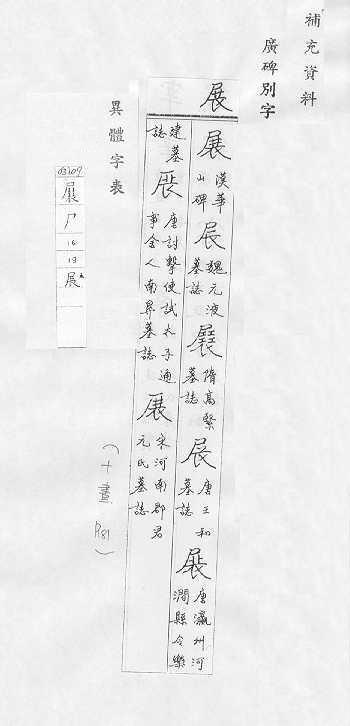 補充資料
廣碑別字
展
展漢華山碑展魏元液墓誌展隋高緊墓誌展唐王和墓誌展唐瀛州河澗縣令樂
建墓誌展唐討擊使試太子通事舍人南昇墓誌展宋河南郡君元氏墓誌
(十畫 P.81)
異體字表
03109
展
尸
16
19
展